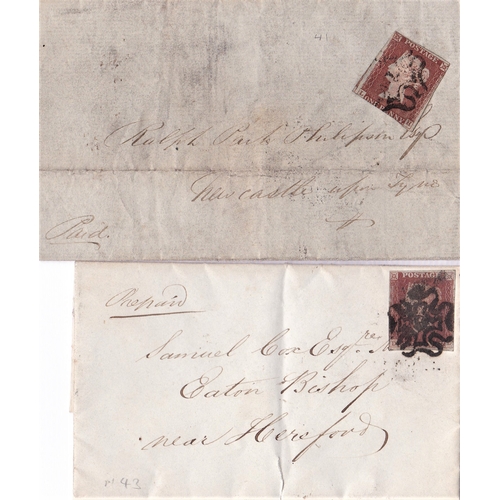 41
POSTAGE
Ralph Park Philipson Esq
Newcastle upon Tyne
Paid.
POSTAGE
Prepaid
Samuel Cox Esqre.
Eaton Bishop
near Hereford
43